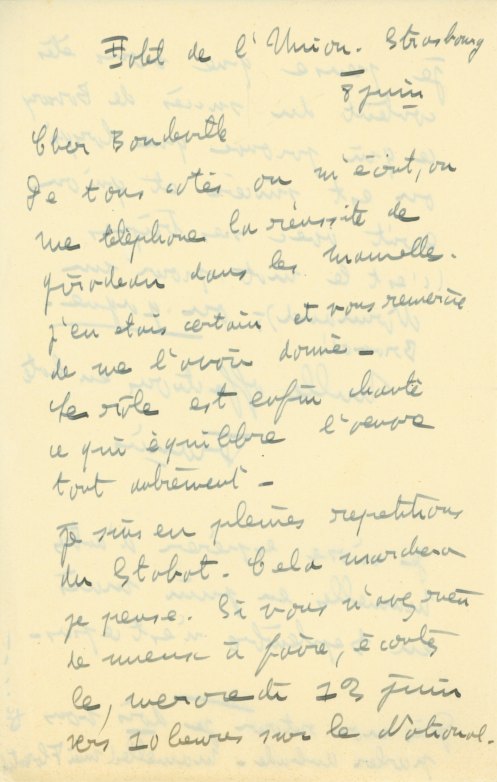 Hotel de l'Union. Strasbourg
8 juin
Cher Bondeville
De tous cotés on m'écrit, on
me téléphone la réussite de
Girodeau dans les Mamelle.
j'en etais certain et vous remercie
de me l'avoir donné -
Le rôle est enfin chanté
ce qui équilibre l'oeuvre
tout autrement -
Je suis en pleines repetitions
du Stabat. Cela marchera
je pense. Si vous n'avez rien
de mieux à faire, écoutez
le, mercredi 13 juin
vers 10 heures sur le National.